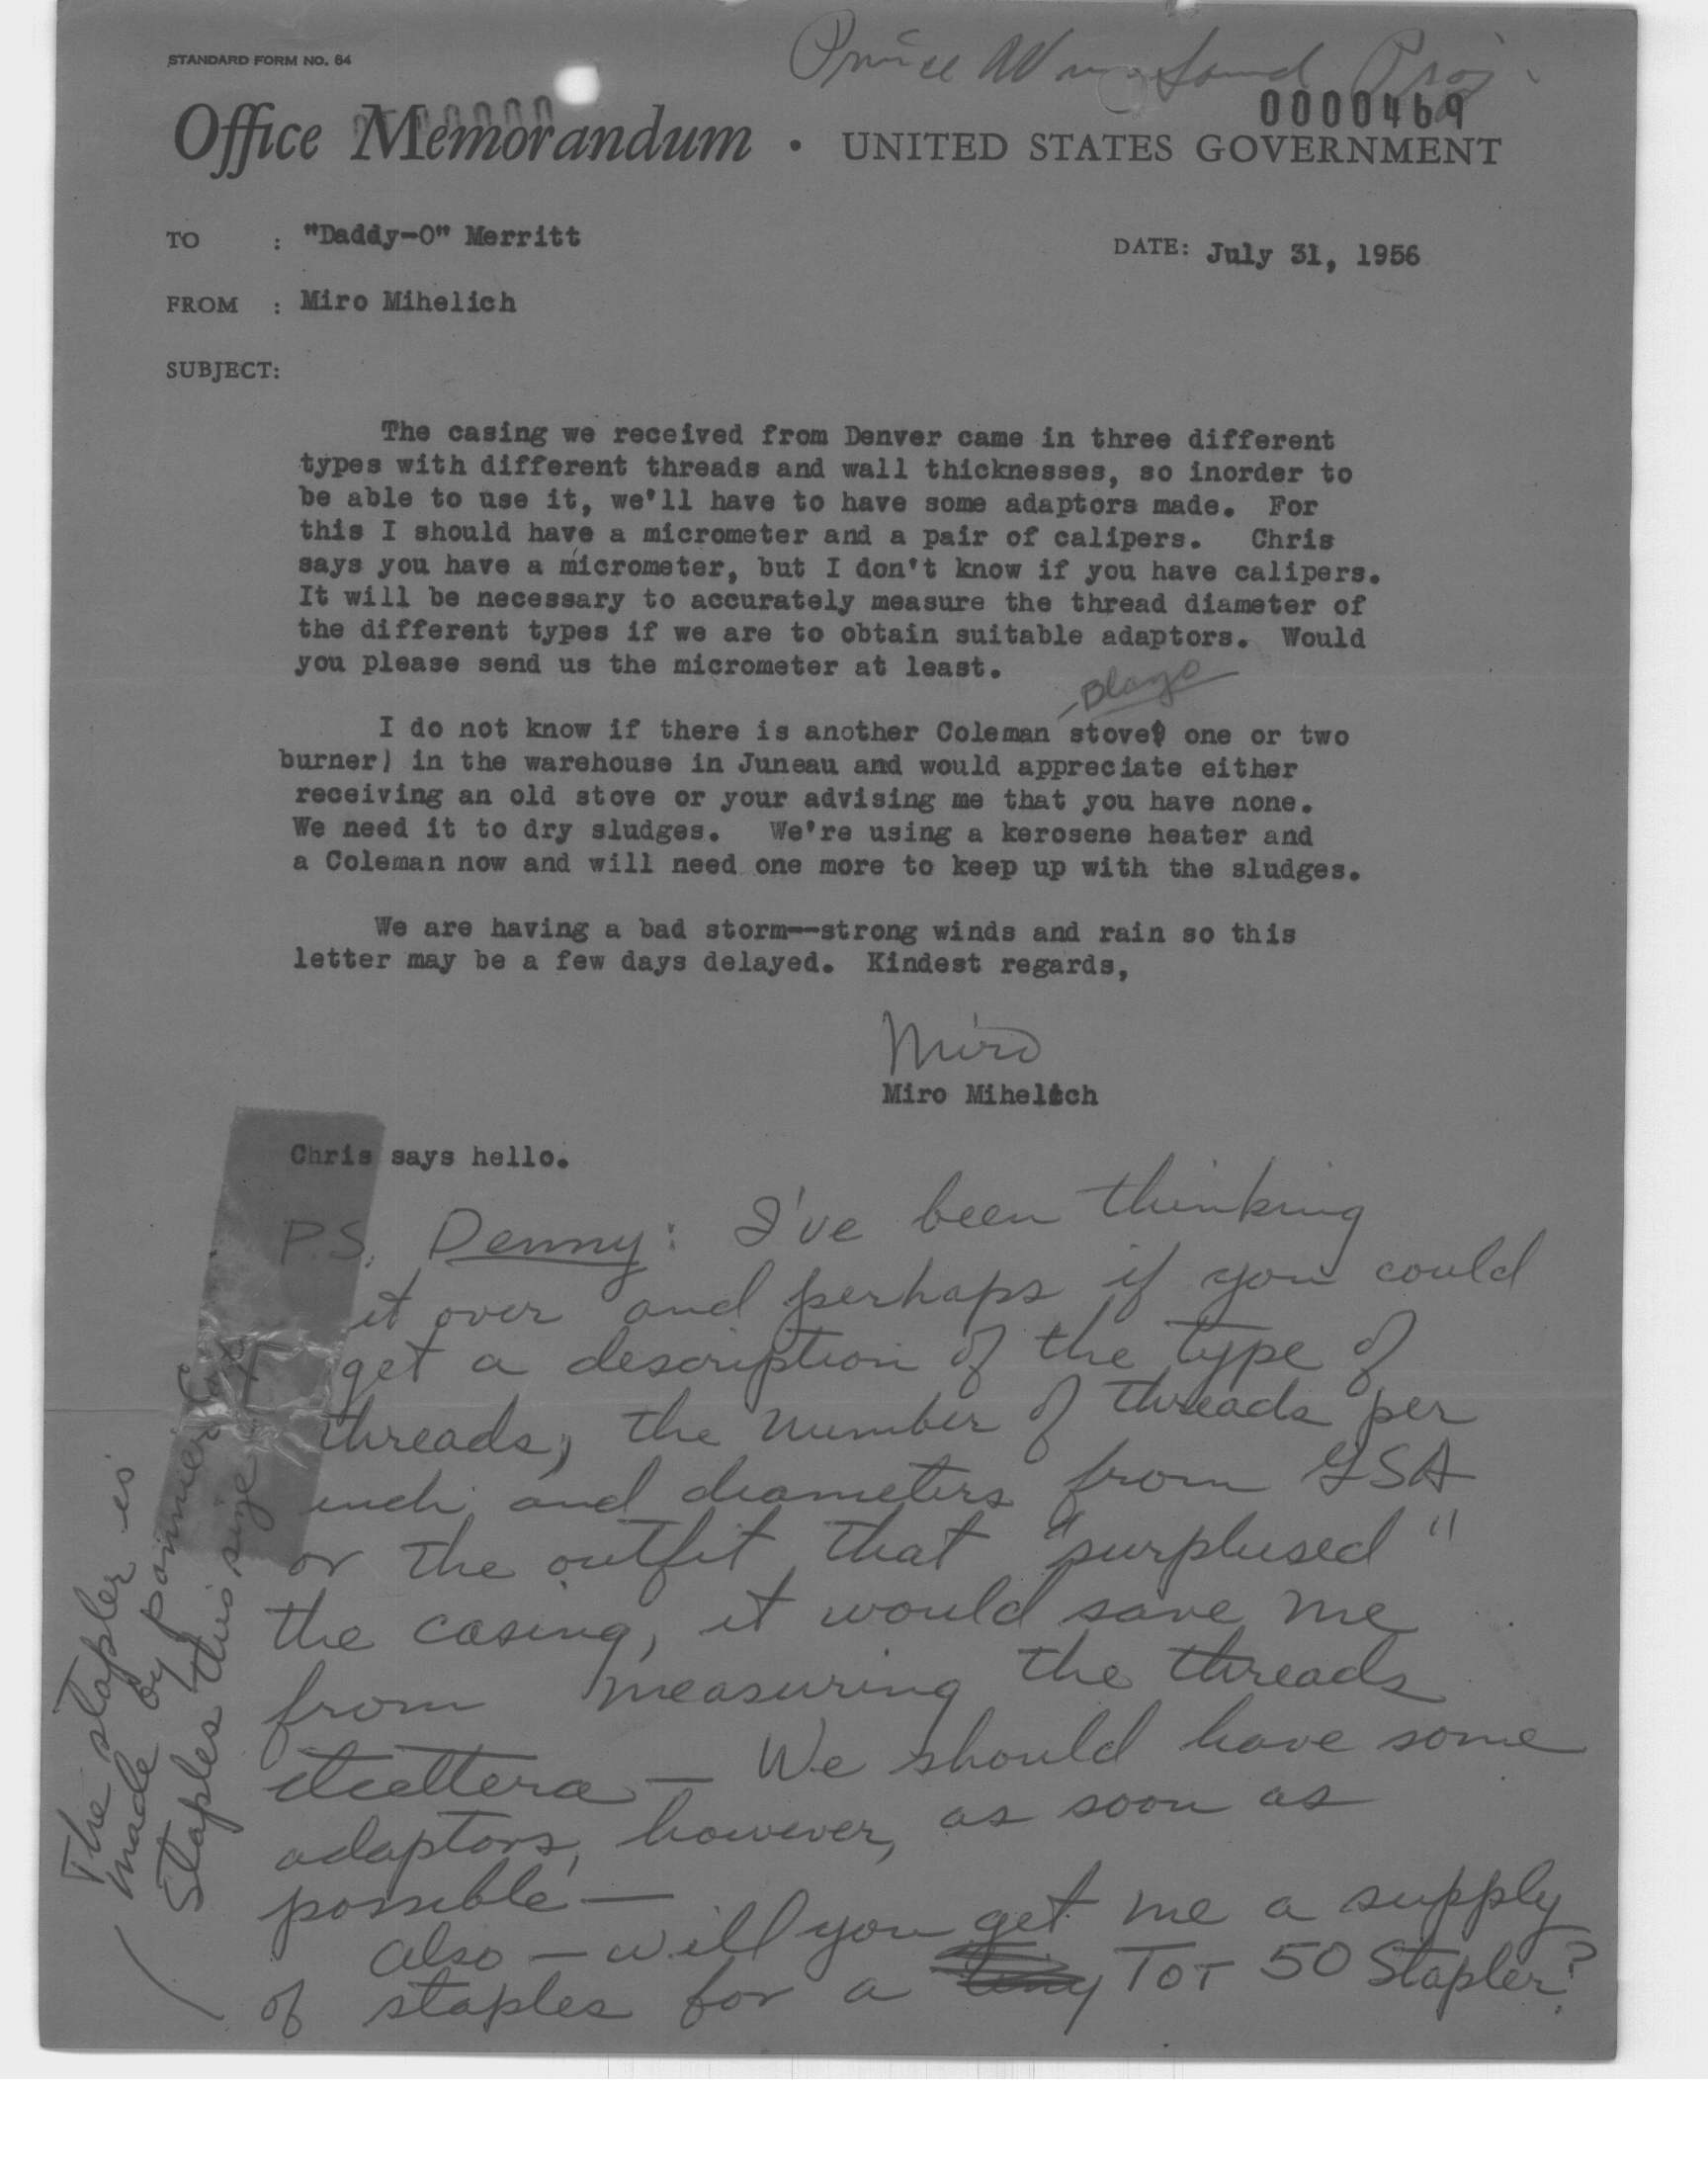 Prince W   Sound Proj.
STANDARD FORM NO. 64
0000469
Office Memorandum • UNITED STATES GOVERNMENT
TO : "Daddy-O" Merritt
DATE: July 31, 1956
FROM : Miro Mihelich
SUBJECT:
The casing we received from Denver came in three different
types with different threads and wall thicknesses, so inorder to
be able to use it, we'll have to have some adaptors made. For
this I should have a micrometer and a pair of calipers. Chris
says you have a micrometer, but I don't know if you have calipers.
It will be necessary to accurately measure the thread diameter of
the different types if we are to obtain suitable adaptors. Would
you please send us the micrometer at least.
I do not know if there is another Coleman stove( one or two
burner) in the warehouse in Juneau and would appreciate either
receiving an old stove or your advising me that you have none.
We need it to dry sludges. We're using a kerosene heater and
a Coleman now and will need one more to keep up with the sludges.
We are having a bad storm--strong winds and rain so this
letter may be a few days delayed. Kindest regards,
Miro
Miro Mihelich
Chris says hello.
P.S. Denny: I've been thinking
it over and perhaps if you could
get a description of the type of
threads, the number of threads per
inch and diameters from GSA
or the outfit that "surplused"
the casing, it would save me
from measuring the threads
etcettera — We should have some
adaptors, however, as soon as
possible —
Also — will you get me a supply
of staples for a TOT 50 Stapler?
The stapler is
made by
Staples this size